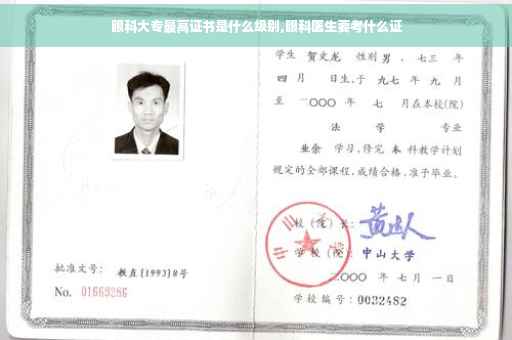 眼科大专最高证书是什么级别,眼科医生要考什么证
学生 贺文龙 性别 男 ,七三 年
四 月 日生,于 九七 年 九 月
至 二〇〇〇 年 七 月在本校(院)
法 学 专业
业余 学习,修完 本 科教学计划
规定的全部课程,成绩合格,准予毕业。
校 (院) 长:
学 校 (院): 中山大学
二〇〇〇 年 七 月 一 日
学校编号: 0032482
批准文号: 教直[1993]8号
No. 01669286